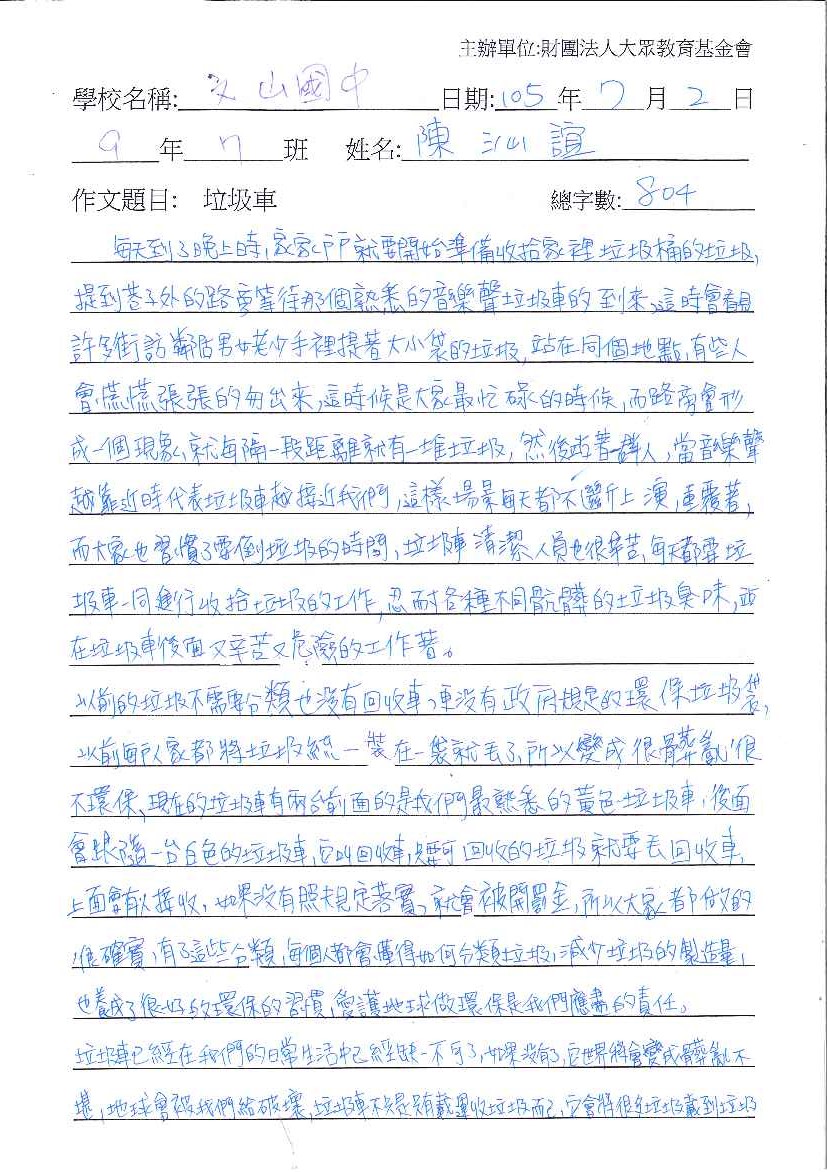 主辦單位:財團法人大眾教育基金會
學校名稱: 文山國中 日期: 105 年 7 月 2 日
9 年 7 班 姓名: 陳沁誼
作文題目: 垃圾車 總字數: 804
每天到了晚上時,家家戶戶就要開始準備收拾家裡垃圾桶的垃圾,
提到巷子外的路旁等待那個熟悉的音樂聲垃圾車的到來,這時會看見
許多街訪鄰居男女老少手裡提著大小袋的垃圾,站在同個地點,有些人
會慌慌張張的匆出來,這時候是大家最忙碌的時候,而路旁會形
成一個現象,就每隔一段距離就有一堆垃圾,然後站著一群人,當音樂聲
越靠近時代表垃圾車越接近我們,這樣場景每天都不斷上演,重覆著,
而大家也習慣了要倒垃圾的時間,垃圾車清潔人員也很辛苦,每天都要垃
圾車一同進行收拾垃圾的工作,忍耐各種不同骯髒的垃圾臭味,要
在垃圾車後面又辛苦又危險的工作著。
以前的垃圾不需要分類也沒有回收車,更沒有政府規定的環保垃圾袋,
以前每戶人家都將垃圾統一裝在一袋就丟了,所以變成很髒亂,很
不環保,現在的垃圾車有兩台前面的是我們最熟悉的黃色垃圾車,後面
會跟隨一台白色的垃圾車,它叫回收車,只要可回收的垃圾就要丟回收車,
上面會有人接收,如果沒有照規定落實,就會被開罰金,所以大家都做的
很確實,有了這些分類,每個人都會懂得如何分類垃圾,減少垃圾的製造量,
也養成了很好的環保的習慣,愛護地球做環保是我們應盡的責任。
垃圾車已經在我們的日常生活中已經缺一不可了,如果沒有了,它世界將會變成髒亂不
堪,地球會被我們給破壞,垃圾車不只是只有載運收垃圾而已,它會將很多垃圾載到垃圾